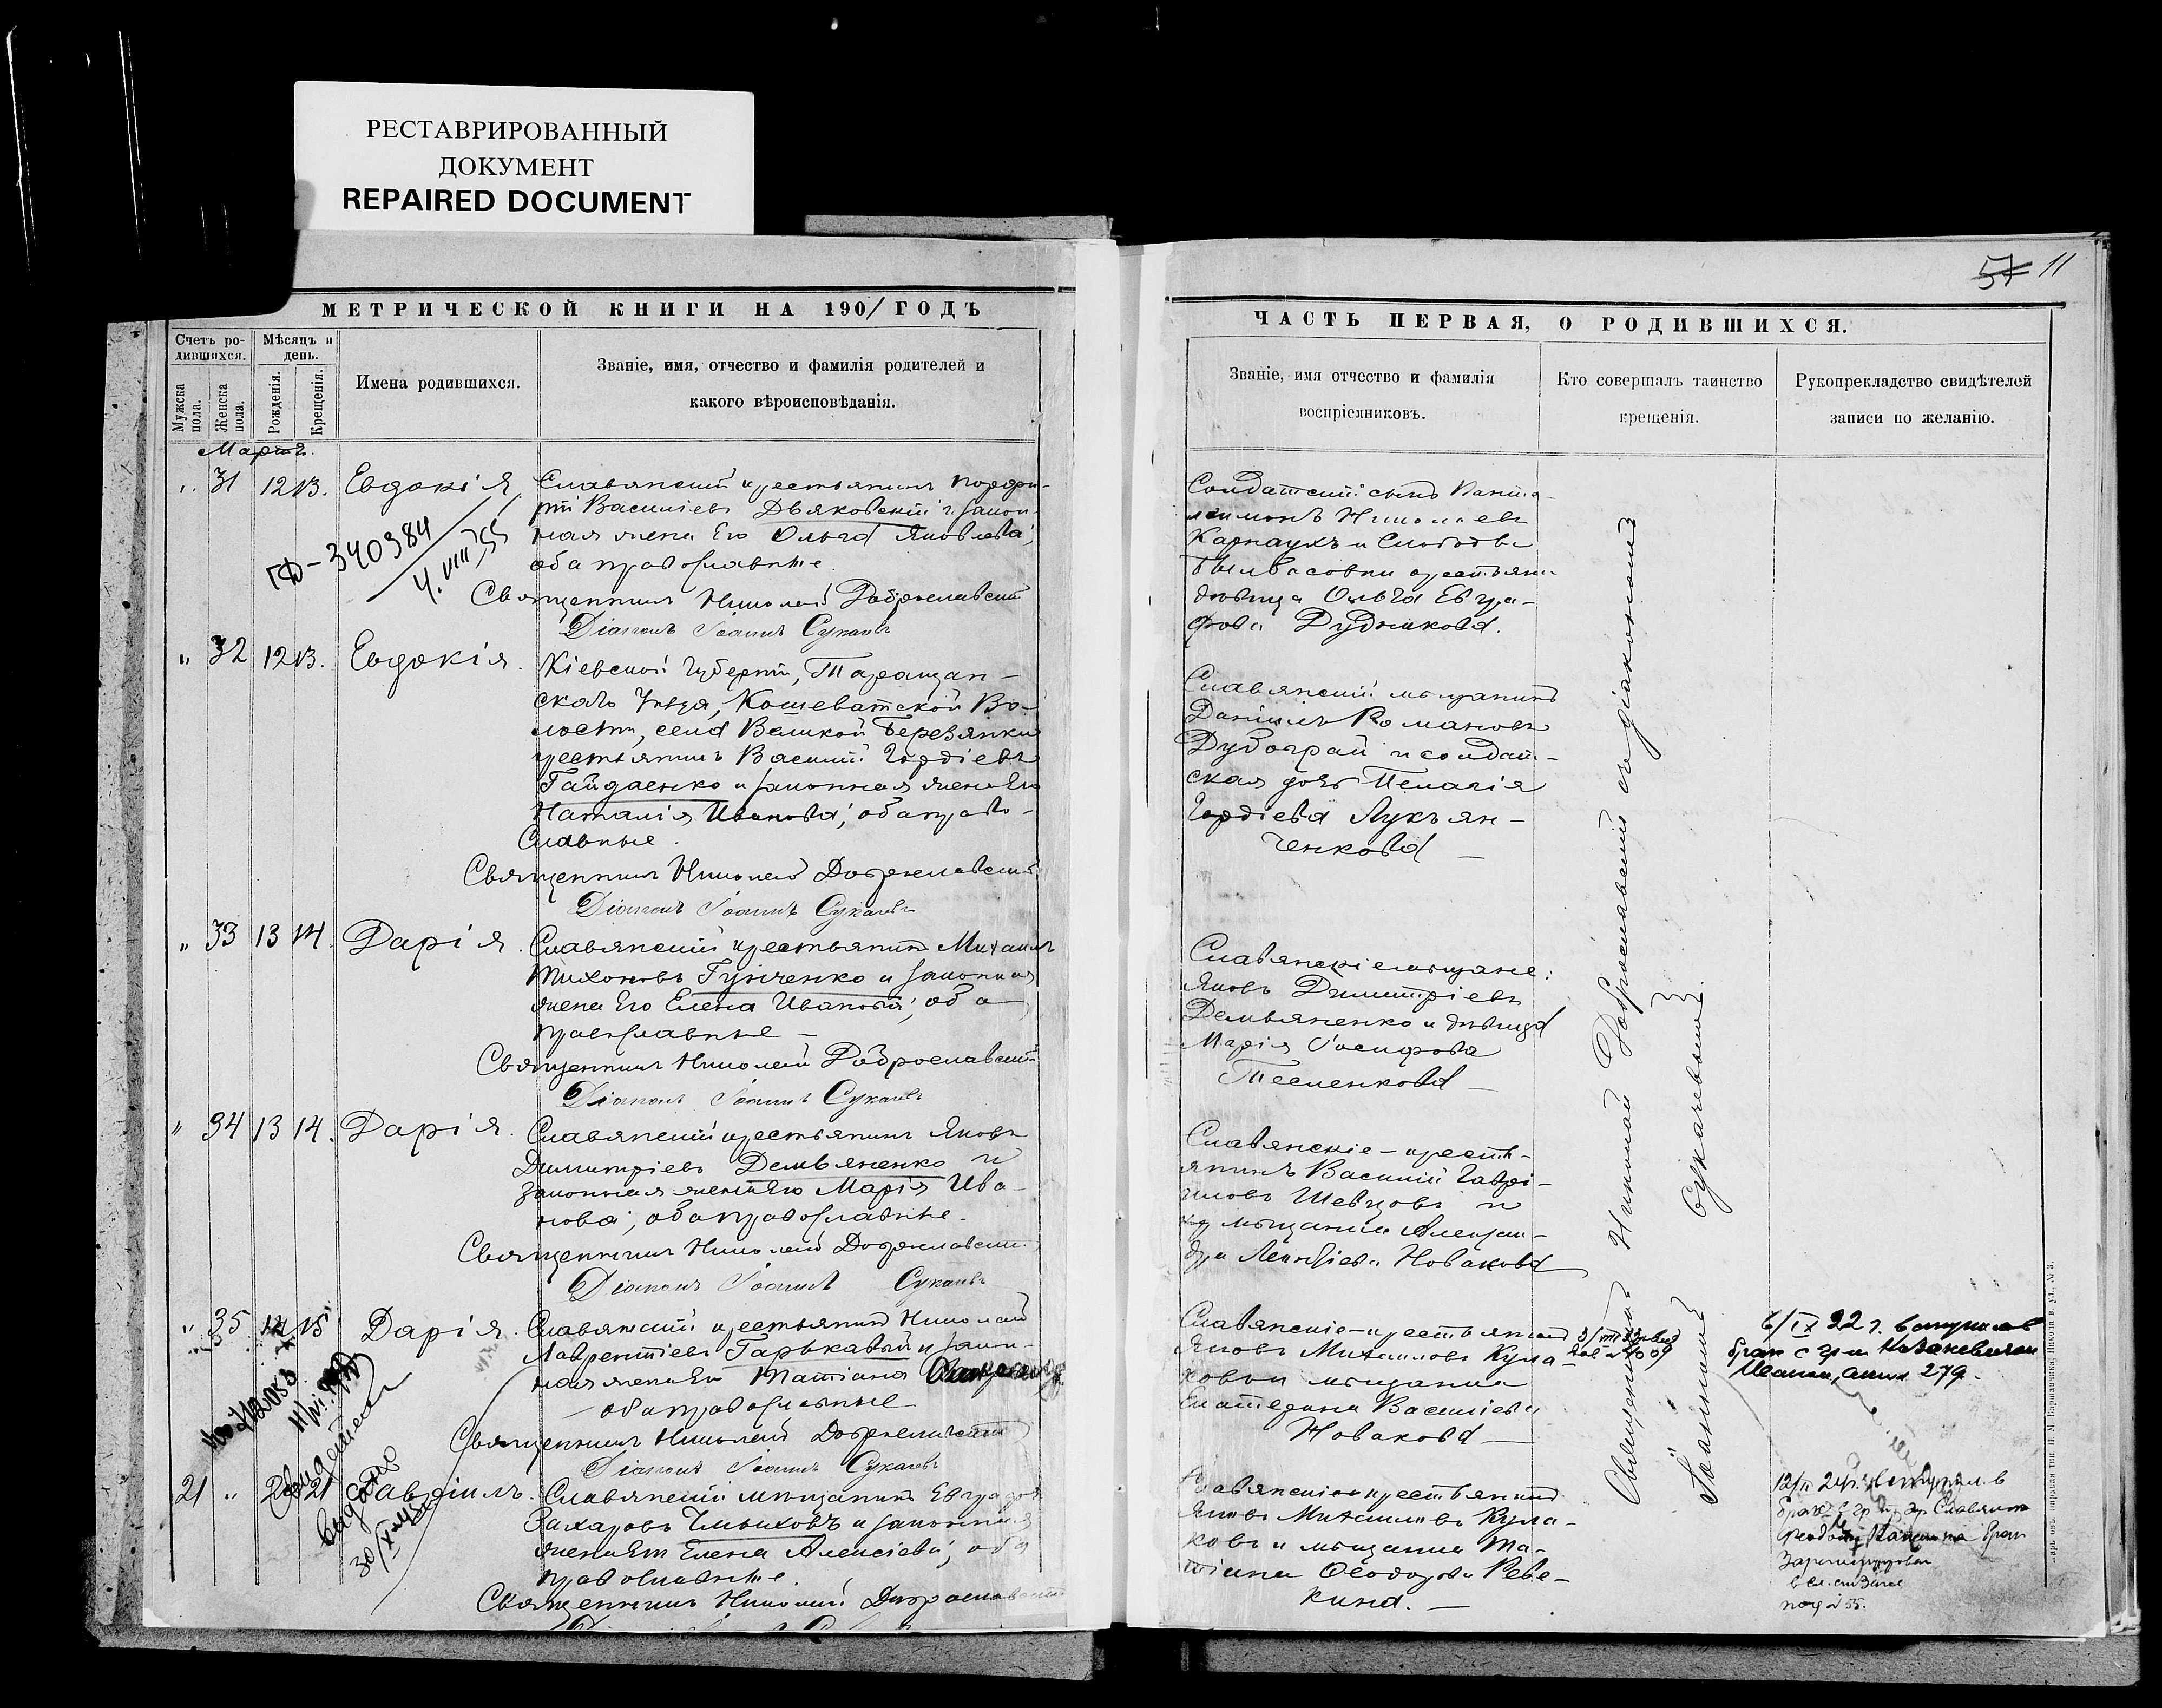 РЕСТАВРИРОВАННЫЙ
ДОКУМЕНТ
REPAIRED DOCUMENT
МЕТРИЧЕСКОЙ КНИГИ НА 1901 ГОДЪ
Счетъ ро-
дившихся.
Мѣсяцъ и
день.
Мужска
пола.
Женска
пола.
Рожденія.
Крещенія.
Имена родившихся.
Званіе, имя, отчество и фамилія родителей и
какого вѣроисповѣданія.
Мартъ.
31 12 13. Евдокія
Славянскій крестьянинъ Порфи-
рій Васильевъ Дьяковскій и закон-
ная жена Его Ольга Яковлева;
оба православные.
ГФ-340384
4.VIII.55
Священникъ Николай Доброславскій
Діаконъ Іоаннъ Сукачевъ
32 12 13. Евдокія.
Кіевской губерніи, Таращан-
скаго Уѣзда, Кошеватской Во-
лости, села Великой Березянки
крестьянинъ Василій Гордіевъ
Гайдаенко и законная жена Его
Наталія Иванова; оба право-
славные.
Священникъ Николай Доброславскій
Діаконъ Іоаннъ Сукачевъ
33 13 14. Дарія.
Славянскій крестьянинъ Михаилъ
Тихоновъ Гунченко и законная
жена Его Елена Иванова; оба
православные
Священникъ Николай Доброславскій
Діаконъ Іоаннъ Сукачевъ
34 13 14. Дарія.
Славянскій крестьянинъ Яковъ
Димитріевъ Демьяненко и
законная жена Его Марія Ива-
нова; оба православные.
Священникъ Николай Доброславскій
Діаконъ Іоаннъ Сукачевъ
35 14 15 Дарія.
Славянскій крестьянинъ Николай
Лаврентіевъ Гарькавый и закон-
ная жена Его Татіана
оба православные
Священникъ Николай Доброславскій
Діаконъ Іоаннъ Сукачевъ
21 " 21 Гавріилъ.
Славянскій мѣщанинъ Евграфъ
Захаровъ и законная
жена Его Елена Алексіева; оба
православные.
Священникъ Николай Доброславскій
выдано
57 11
ЧАСТЬ ПЕРВАЯ, О РОДИВШИХСЯ.
Званіе, имя отчество и фамилія
воспріемниковъ.
Кто совершалъ таинство
крещенія.
Рукоприкладство свидѣтелей
записи по желанію.
Солдатскій сынъ Панте-
леимонъ Николаевъ
Карнаухъ и Слободы
Былбасовки крестьян.
дѣвица Ольга Евгра-
фова Дудникова.
Славянскій мѣщанинъ
Даніилъ Романовъ
Дубограй и солдат-
ская дочь Пелагія
Гордіева Лукьян-
ченкова
Славянскіе мѣщане:
Яковъ Димитріевъ
Демьяненко и дѣвица
Марія Іосифова
Тесленкова
Славянскіе-кресть-
янинъ Василій Гаврі-
иловъ Шевцовъ и
мѣщанка Алексан-
дра Леонтіева Новакова
Славянскіе-крестьянинъ
Яковъ Михаиловъ Кула-
ковъ и мѣщанка
Екатерина Васильева
Новакова
Славянскіе крестьянинъ
Яковъ Михаиловъ Кула-
ковъ и мѣщанка Та-
тіана Ѳеодорова Ребе-
кина.
Священникъ Николай Доброславскій съ діакономъ
Іоанномъ Сукачевымъ.
6/IX 22 г. вступила в
брак с гр-м Новакевичем
актъ 279.